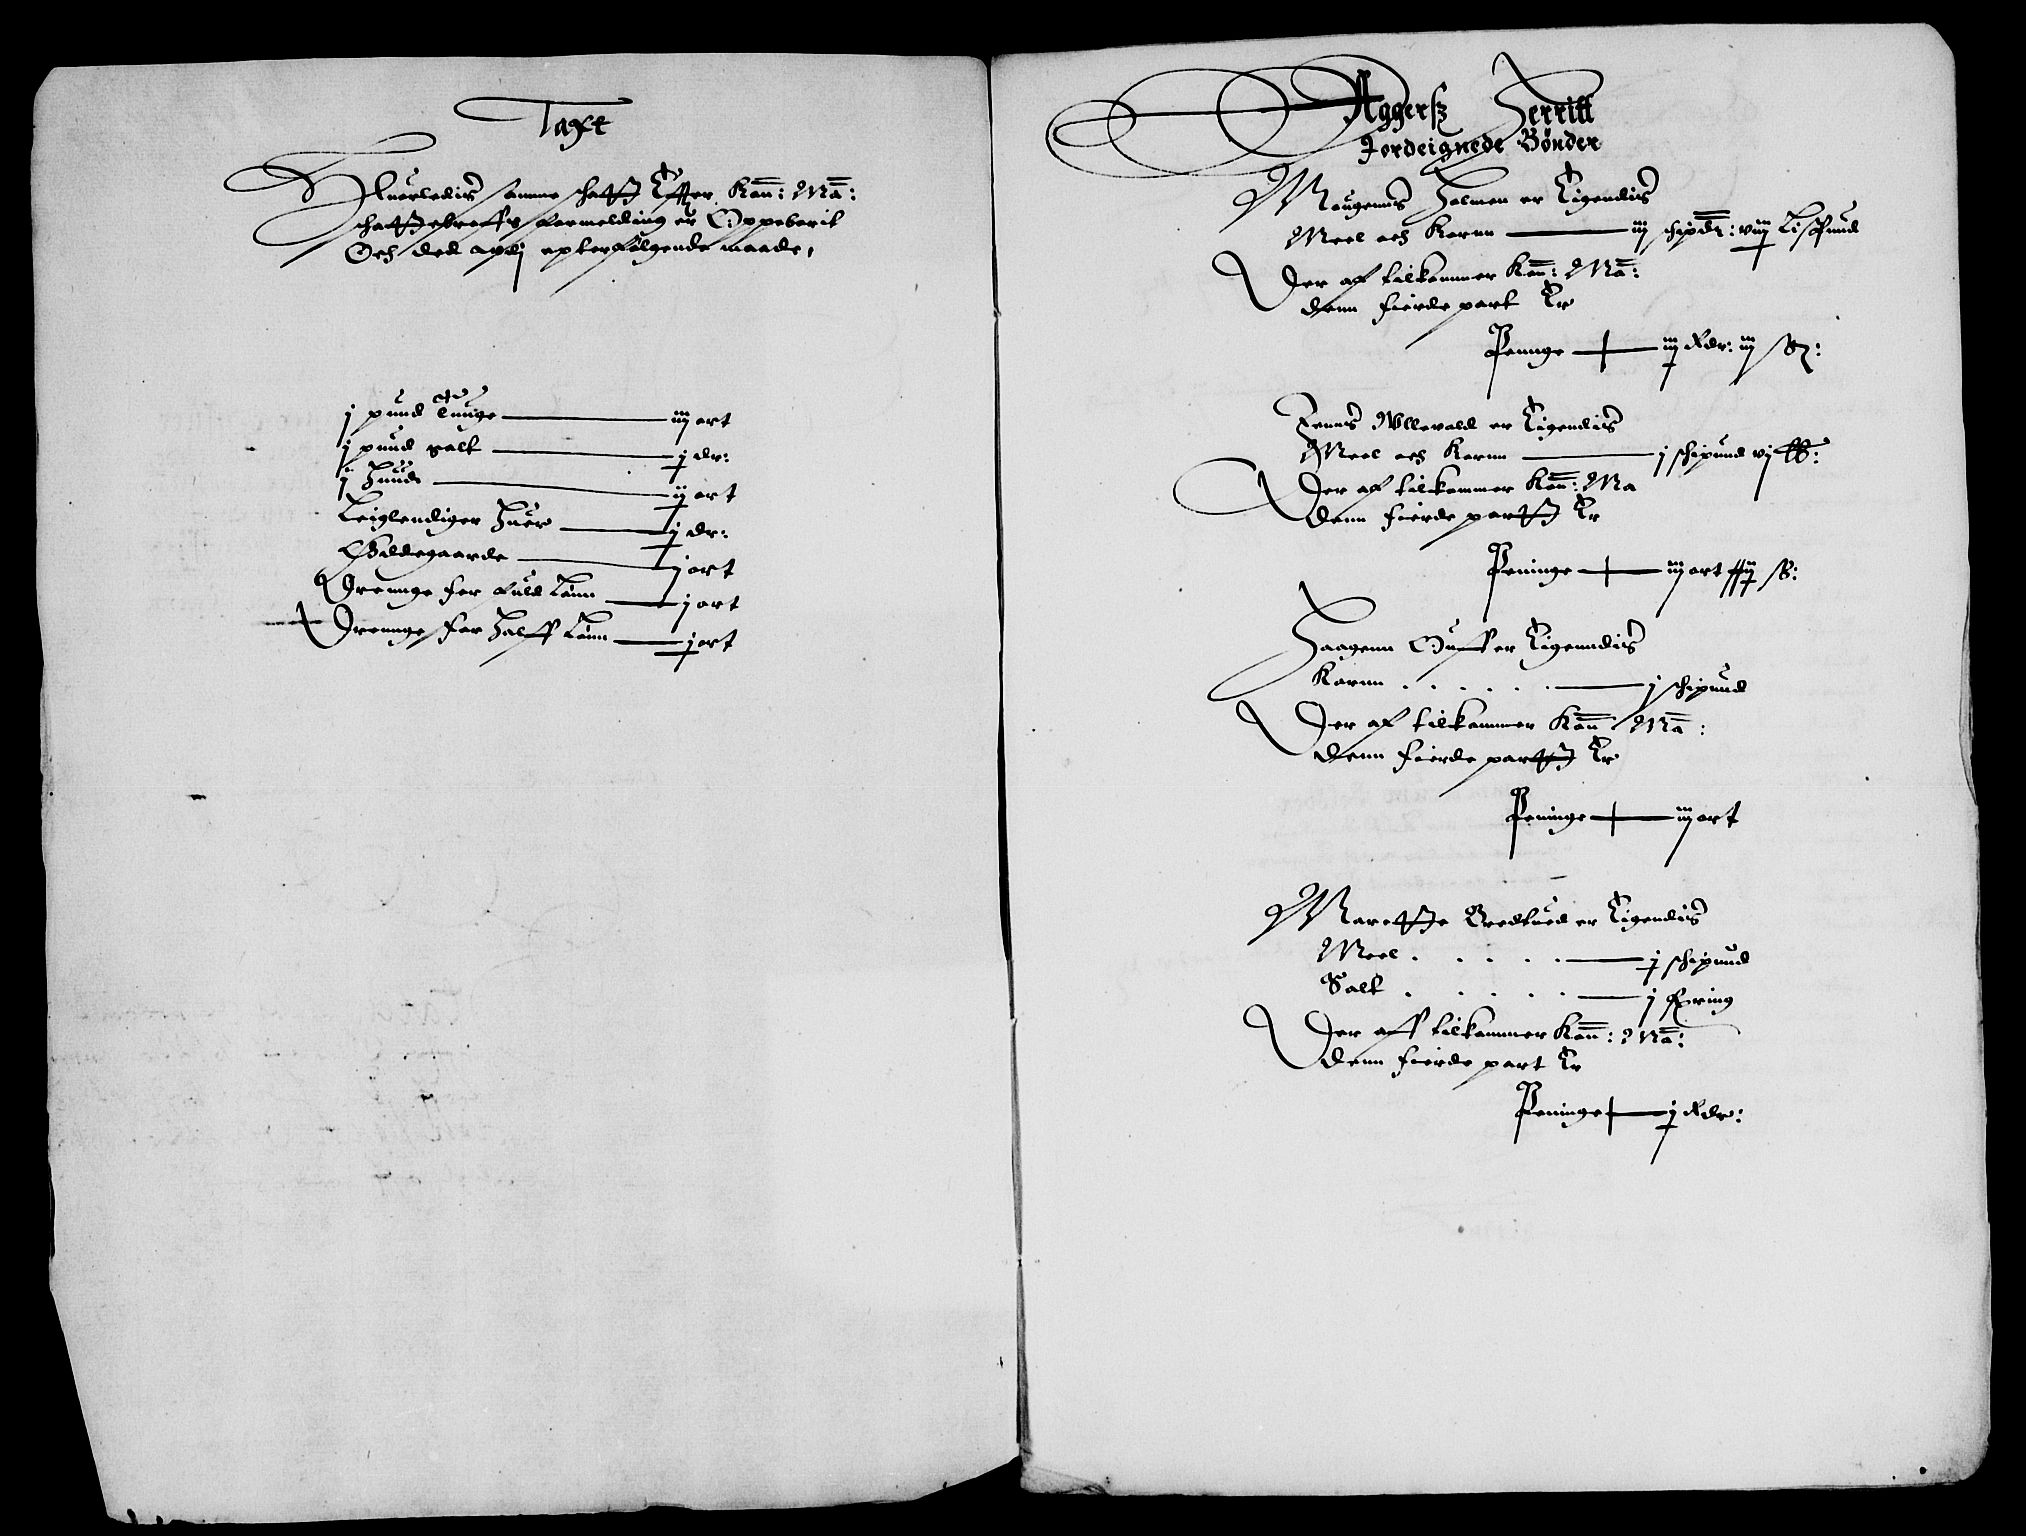 Taxt
Huorledis samme schatt Effter Kon: Ma:
schattebreffs formelding er Oppeborit
Och det aff epterfølgende maade,
j pund tunge iij ort
j pund salt j dr:
j Hund ij ort
Leiglendiger Huer j dr:
Øddegaarde j ort
Drennge for fuld Lønn j ort
Drennge for Halff Lønn j ort
Aggers Herritt
Jordeignede Bønder
Mougenns Holmen er Eigendis
Meel och Kornn iij schipd: viij Lispund
Der af tilkommer Kon: Ma:
denn fierde part Er
Penninge iij Rdr: iij ß:
Jenns Ullevold er Eigendis
Meel och Kornn j schipund vj ℔:
Der af tilkommer Kon: Ma
denn fierde partt Er
Peninge iij ort iij ß:
Haagenn Guff er Eigenndis
Kornn . . . . . . j schipund
Der af tilkommer Kon Ma:
denn fierde partt Er
Peninge iij ort
Marette Bredtued er Eigendis
Meel . . . . . j schipund
Salt . . . . . j Fering
Der aff tilkommer Kon: Ma:
denn fierde part Er
Peninge j Rdr: